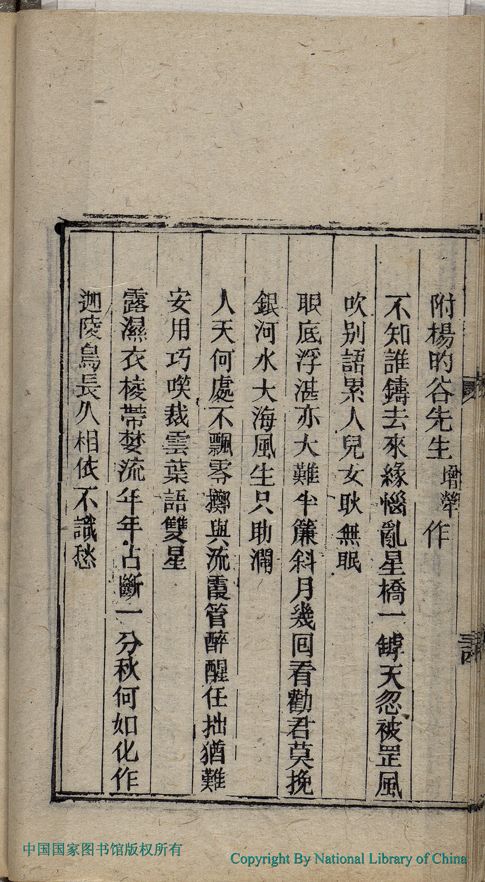 附楊昀谷先生增犖作
不知誰鑄去來緣惱亂星橋一罅天忽被罡風
吹别語累人兒女耿無眠
眼底浮湛亦大難半簾斜月幾回看勸君莫挽
銀河水大海風生只助瀾
人天何處不飄零擲與流霞管醉醒任拙猶難
安用巧嘆裁雲葉語雙星
露濕衣棱帶婪流年年占斷一分秋何如化作
迦陵鳥長久相依不識愁
中国国家图书馆版权所有
Copyright By National Library of China